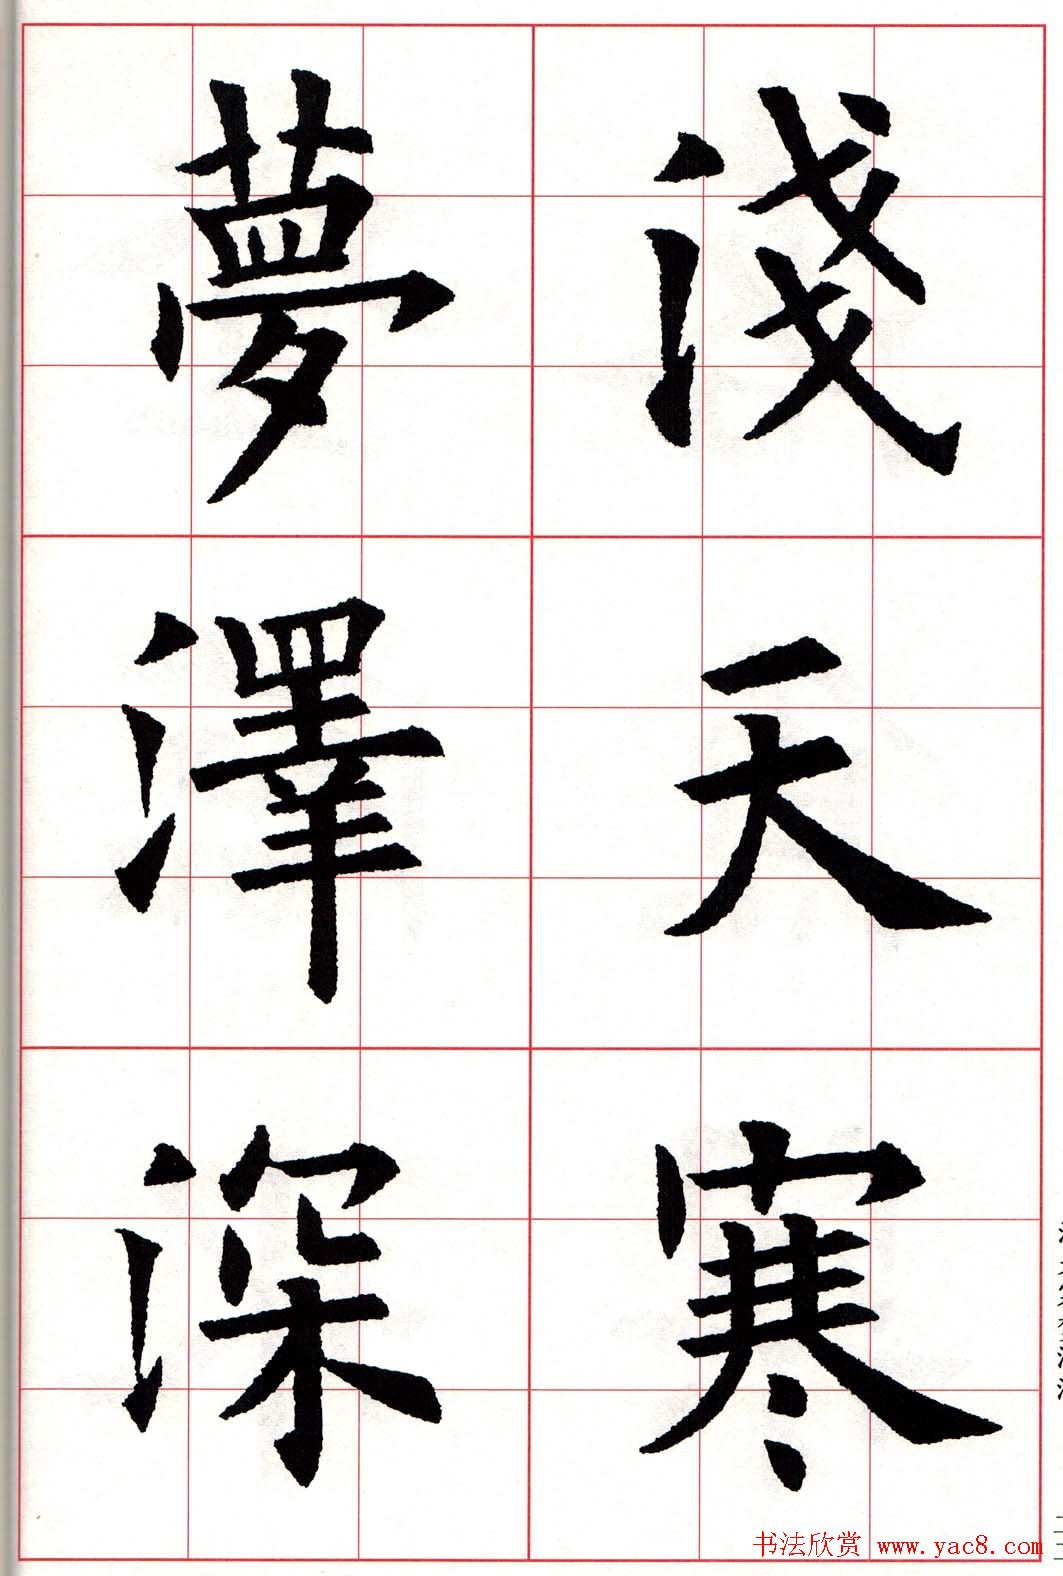 淺天寒
夢澤深
书法欣赏 www.yac8.com